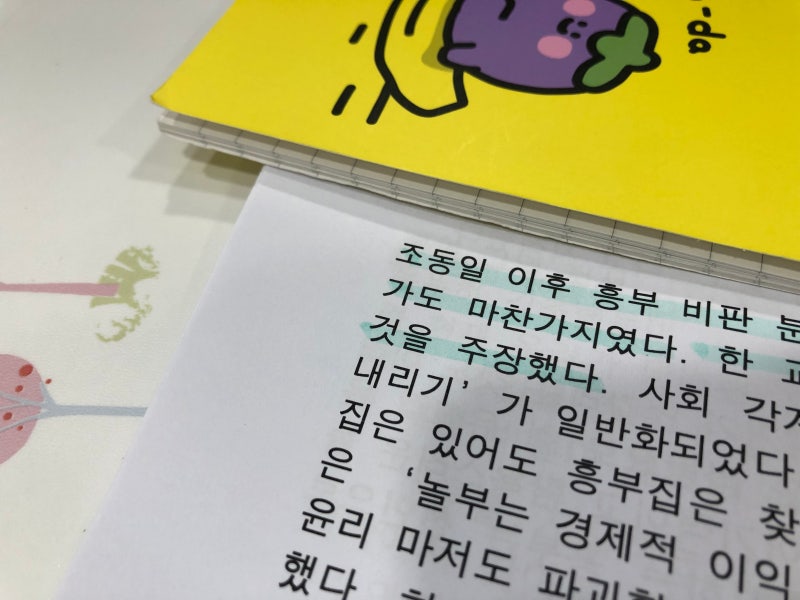 -da
조동일 이후 흥부 비판
가도 마찬가지였다. 한
것을 주장했다. 사회
내리기’ 가 일반화되었다
집은 있어도 흥부집은 찾
은 ‘놀부는 경제적 이익
윤리 마저도
했다